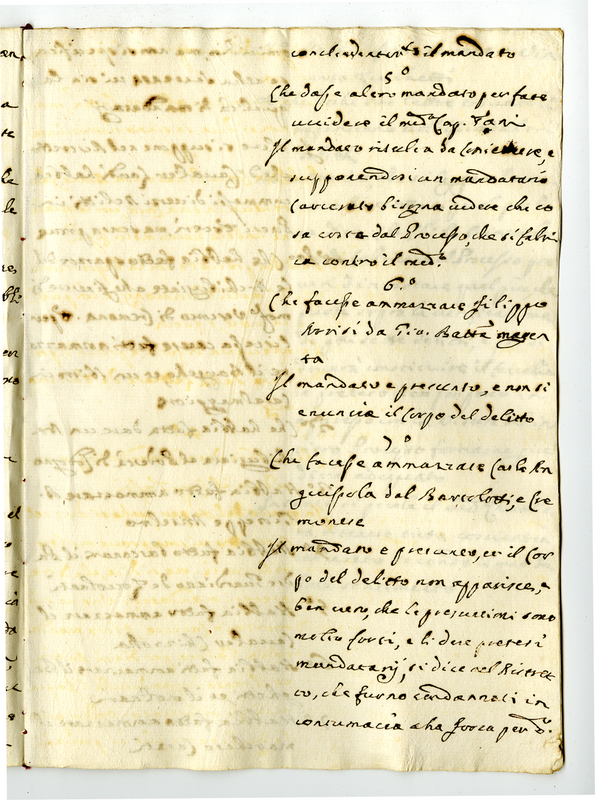 il mandato
5°
Che dasse altro mandato per fare
uccidere il med.° Cap.
Il mandato risulta da, e
supponendosi un mandatario
carcerato bisogna vedere che co
sa costa dal Processo, che si fabri
ca contro il med.°
6.°
Che facesse ammazzare Filippo
da Gio. Batta magen
ta
Il mandato è presunto, e non si
enuncia il corpo del delitto
7°
Che facesse ammazzare Carlo An
guissola dal Bartolotti, e Cre
monese
Il mandato è presunto, et il Cor
po del delitto non apparisce, è
ben vero, che le presuntioni sono
molto forti, e li due pretesi
mandatarij, si dice nel Ristret
to, che furno condannati in
contumacia alla forca per d.°